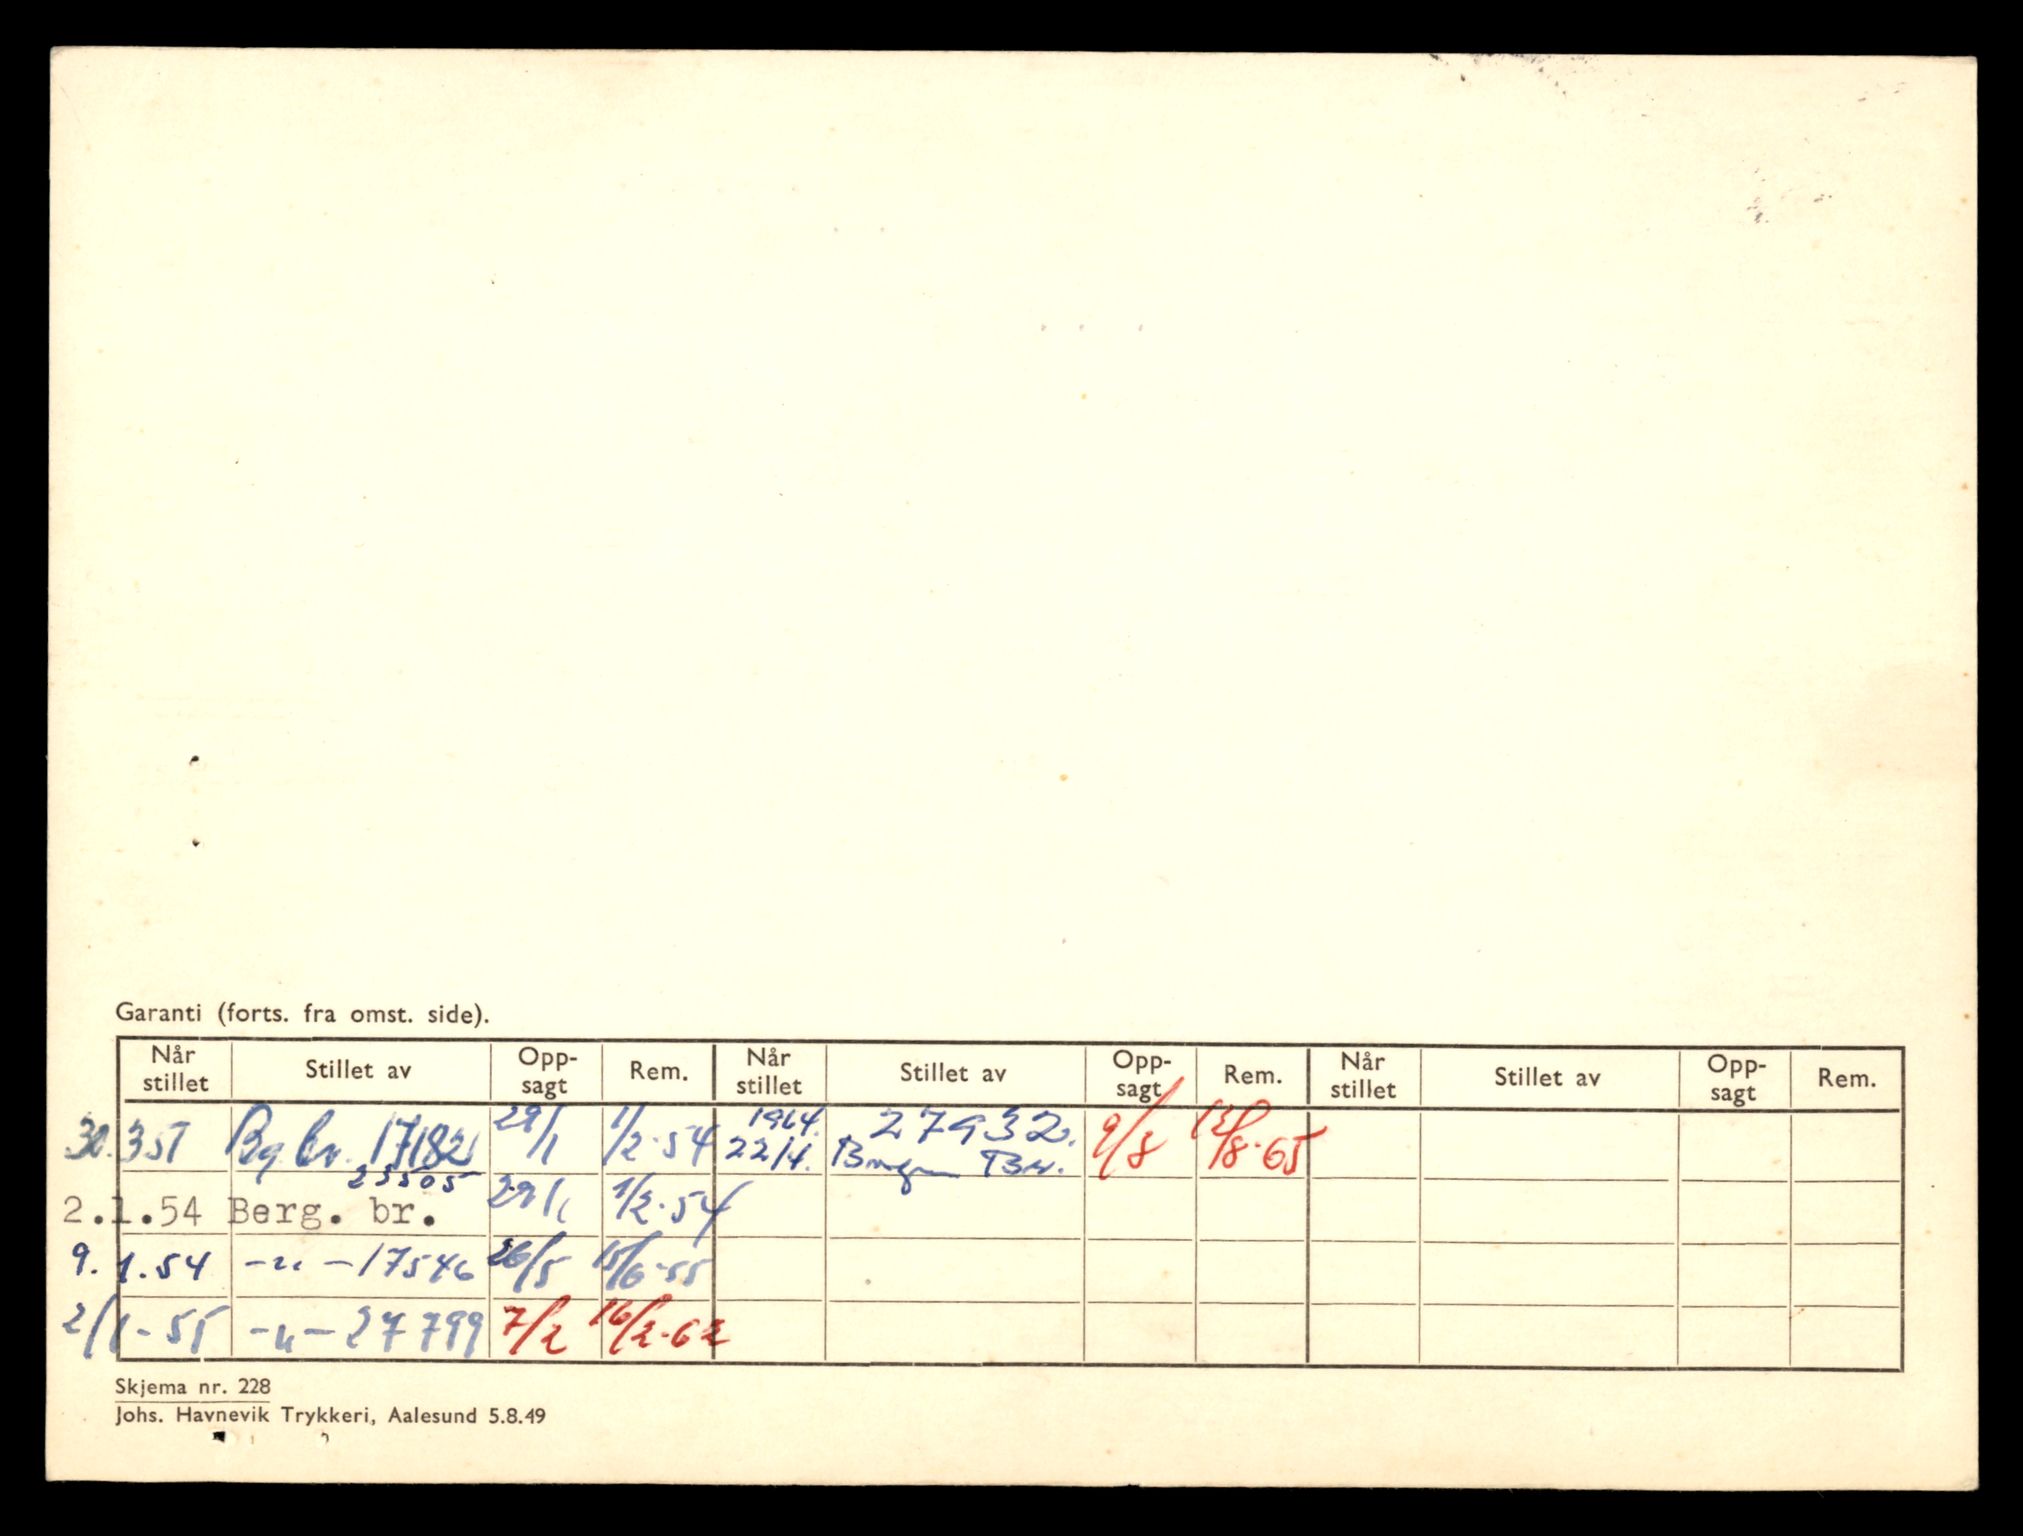 Garanti (forts. fra omst. side).
Når stillet Stillet av Opp-sagt Rem. Når stillet Stillet av Opp-sagt Rem. Når stillet Stillet av Opp-sagt Rem.
30.3 51 Bg. br. 17182 29/1 1/2-54 1964. 22/4. 27932. Br. 9/8 13/8-65
23505
2.1.54 Berg. br. 29/1 1/2-54
9.1.54 -"-17546 26/5 15/6-55
2/1-55 -"-27799 7/2 16/2-62
Skjema nr. 228
Johs. Havnevik Trykkeri, Aalesund 5.8.49